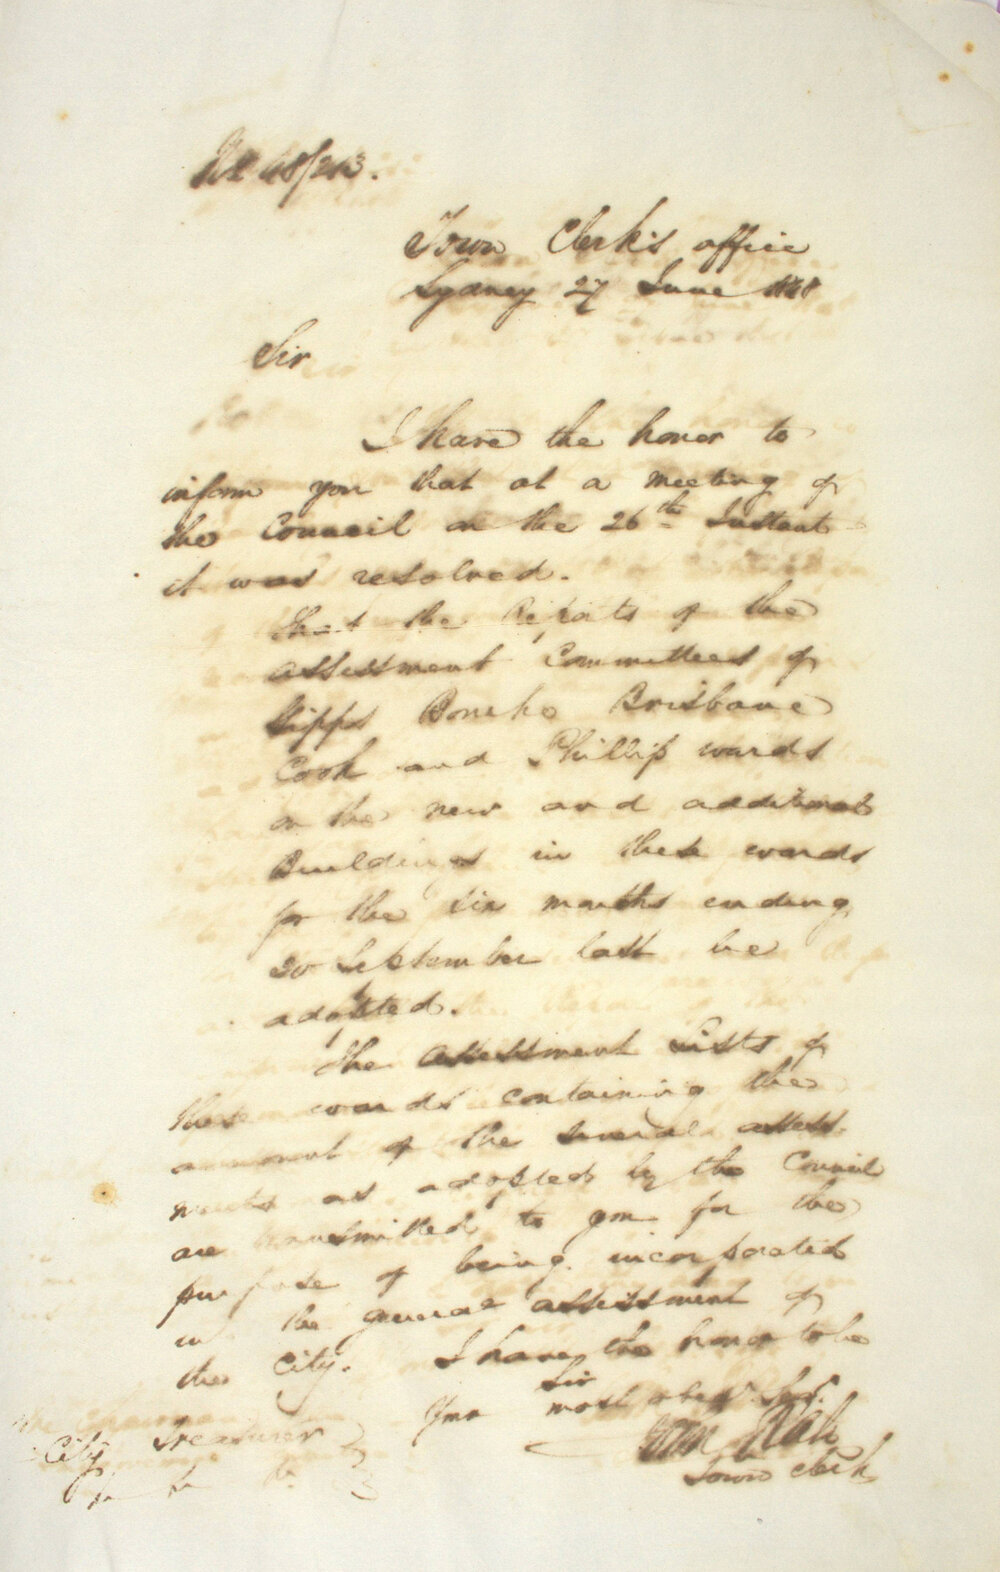 No 48/213.
Town Clerk's office
Sydney 27 June 1848
Sir
I have the honor to
inform you that at a meeting of
the Council on the 26th Instant
it was resolved.
That the Reports of the
Assessment Committees of
Gipps Bourke Brisbane
Cook and Phillip wards
on the new and additional
Buildings in these wards
for the six months ending
September last be
adopted.
The Assessment Lists of
these wards containing the
amount of the several assess
ments as adopted by the Council
are transmitted to you for the
purpose of being incorporated
in the general assessment of
the City. I have the honor to be
Sir
Your most obedt Servt.
Town Clerk
City Treasurer